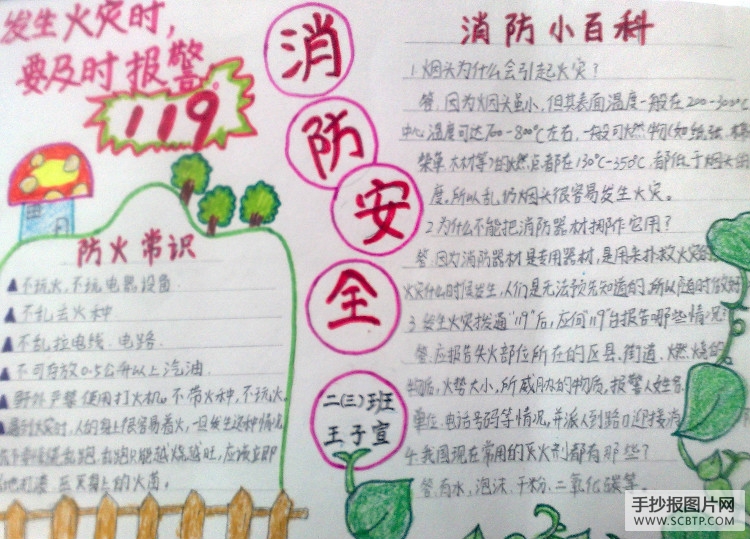 发生火灾时,
要及时报警。
119
消
防
安
全
二(三)班
王子宣
防火常识
不玩火,不玩电器设备
不乱丢火种
不乱拉电线、电路
不可存放0.5公升以上汽油
野外严禁使用打火机,不带火种,不玩火。
遇到火灾时,人的身上很容易着火,一旦发生这种情况
乱跑,乱跑只能越烧越旺,应该立即
地打滚,压灭身上的火苗。
消防小百科
1.烟头为什么会引起火灾?
答:因为烟头虽小,但其表面温度一般在200-300℃
中心温度可达700-800℃左右,一般可燃物(如纸张、棉
柴草、木材等)的燃点都在130℃-350℃,都低于烟头
度,所以乱扔烟头很容易发生火灾。
2.为什么不能把消防器材挪作它用?
答:因为消防器材是专用器材,是用来扑救火灾的
火灾什么时候发生,人们是无法预先知道的,所以应
3.发生火灾拨通"119"后,应向"119"台报告哪些情况?
答:应报告失火部位所在的区县、街道、燃烧的
物质,火势大小,所威胁的物质,报警人姓名
单位、电话号码等情况,并派人到路口迎接消
4.我国现在常用的灭火剂都有那些?
答:有水,泡沫,干粉,二氧化碳等。
手抄报图片网
WWW.SCBTP.COM